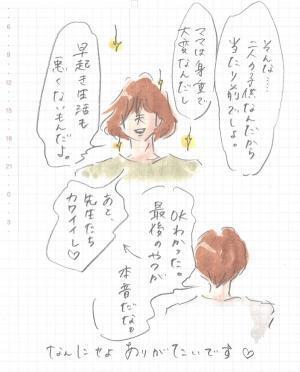 そんな……
二人の子供なんだから
当たり前でしょ。
ママは身重で
大変なんだし
早起き生活も
悪くないもんだよ。
あと、
先生たち
カワイイし♡
OKわかった。
最後のやつが
本音だなぁ
なんにせよ ありがたいです♡